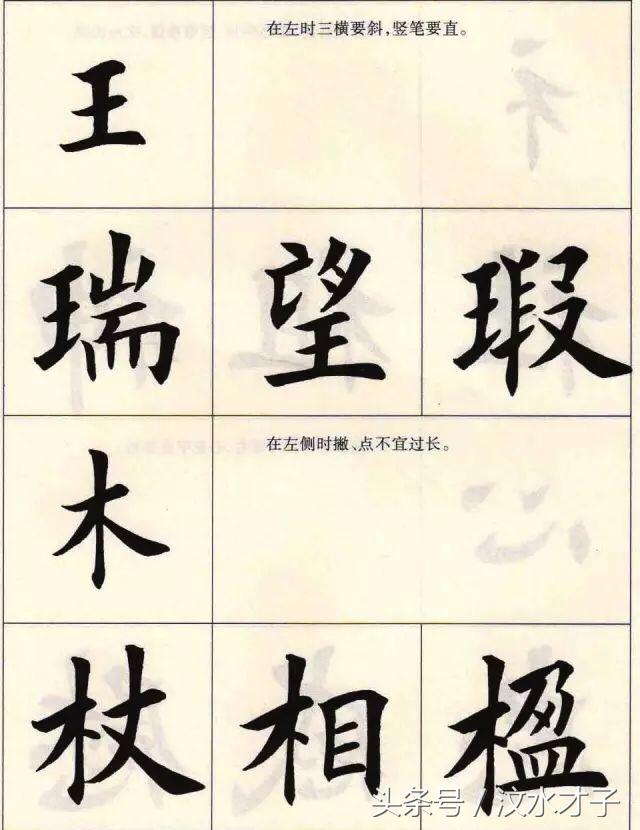 在左时三横要斜,竖笔要直。
王
瑞 望 瑕
在左侧时撇、点不宜过长。
木
杖 相 楹
头条号／汶水才子